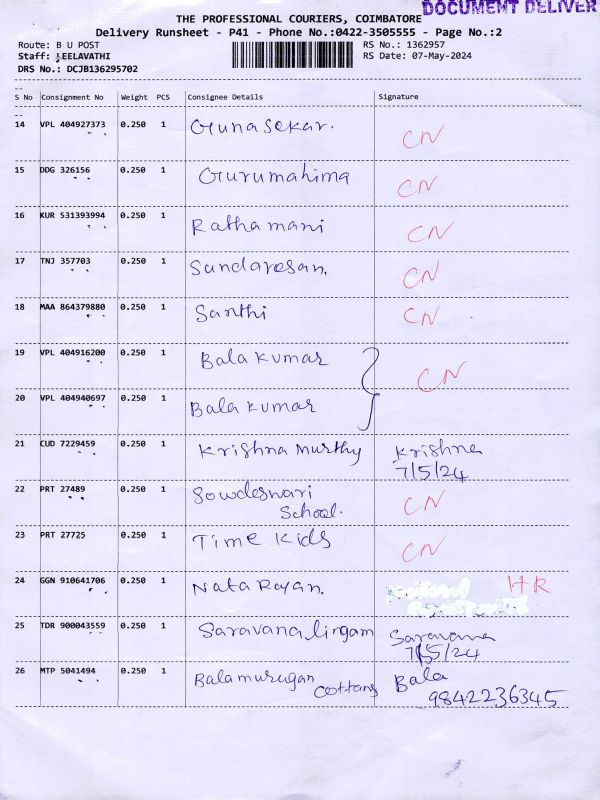 DOCUMENT DELIVER
THE PROFESSIONAL COURIERS, COIMBATORE
Delivery Runsheet - P41 - Phone No.:0422-3505555 - Page No.:2
Route: B U POST RS No.: 1362957
Staff: LEELAVATHI RS Date: 07-May-2024
DRS No.: DCJB136295702
S No Consignment No Weight PCS Consignee Details Signature
14 VPL 404927373 0.250 1 Gunasekar. CN
15 DDG 326156 0.250 1 Gurumahima CN
16 KUR 531393994 0.250 1 Rathamani CN
17 TNJ 357703 0.250 1 Sundaresan. CN
18 MAA 864379880 0.250 1 Santhi CN
19 VPL 404916200 0.250 1 Bala Kumar
CN
20 VPL 404940697 0.250 1 Bala Kumar
21 CUD 7229459 0.250 1 Krishna Murthy Krishna
7/5/24
22 PRT 27489 0.250 1 Sowdeswari CN
School.
23 PRT 27725 0.250 1 Time Kids CN
24 GGN 910641706 0.250 1 Nata Rayan. HR
25 TDR 900043559 0.250 1 Saravanalingam Saravana
7/5/24
26 MTP 5041494 0.250 1 Balamurugan Bala
Cottons 9842236345